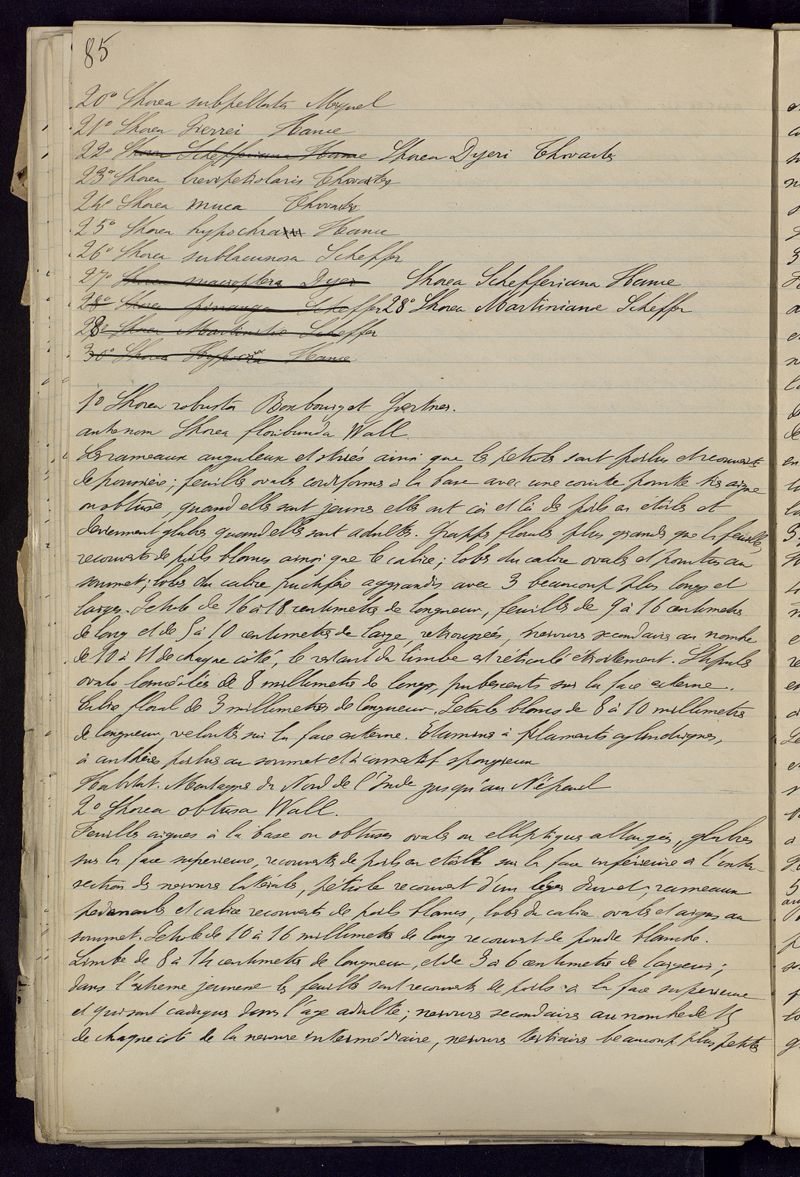 85
20° Shorea subpeltata Miquel
21° Shorea Pierrei Hance
22° Shorea Scheffèriana Hance Shorea Dyeri Thwaites
23° Shorea brevipetiolaris Thwaites
24° Shorea muca Thwaites
25° Shorea hypochra Hance
26° Shorea sublacunosa Scheffer
27° Shorea macroptera Dyer Shorea Schefferiana Hance
28° Shorea pinanga Scheffer 28° Shorea Martiniana Scheffer
28° Shorea Scheffer
30° Shorea Hypocra Hance
1° Shorea robusta Boxbourg et Gærtner.
autre nom Shorea floribunda Wall
Les rameaux anguleux et striés ainsi que les petiols sont poilus et recouverts
de poussière; feuilles ovals cordiforms à la base avec une courte pointe très aigue
ou obtuse, quand elles sont jeunes elles ont ça et là des poils en étoiles et
deviennent glabres quand elles sont adultes. Grappes florales plus grandes que les feuilles,
recouverts de poils blancs ainsi que le calice; lobes du calice ovals et pointus au
sommet; lobes du calice fructifère aggrandis avec 3 beaucoup plus longs et
larges. Petiole de 16 à 18 centimetres de longueur, feuilles de 9 à 16 centimetres
de long et de 5 à 10 centimetres de large, nervures secondaires au nombre
de 10 à 11 de chaque côté, le restant du limbe est réticulé étroitement. Stipules
ovals de 8 millimetres de long, pubescents sur la face externe.
Calice floral de 3 millimetres de longueur. Petales blancs de 8 à 10 millimetres
de longueur, veloutés sur la face externe. Etamines à filaments cylindriques,
à anthères poilus au sommet et à connectif spongieux
Habitat. Montagnes du Nord de l'Inde jusqu'au Népaul
2° Shorea obtusa Wall.
Feuilles aigues à la base ou obtuses ovals ou elliptiques allongés, glabres
sur la face superieure, recouverts de poils en étoiles sur la face inférieure à l'inter-
section des nervures latérals, pétiole recouvert d'un léger duvet; rameaux
pedoncules et calice recouverts de poils blancs, lobes du calice ovals et aigus au
sommet. Petiole de 10 à 16 millimetres de long recouvert de poudre blanche.
Limbe de 8 à 14 centimetres de longueur, et de 3 à 6 centimetres de largeur;
dans l'extreme jeunesse les feuilles sont recouverts de poils à la face superieure
et qui sont caduques dans l'age adulte; nervures secondaires au nombre de 15
de chaque côté de la nervure intermédiaire, nervures tertiairs beaucoup plus petites